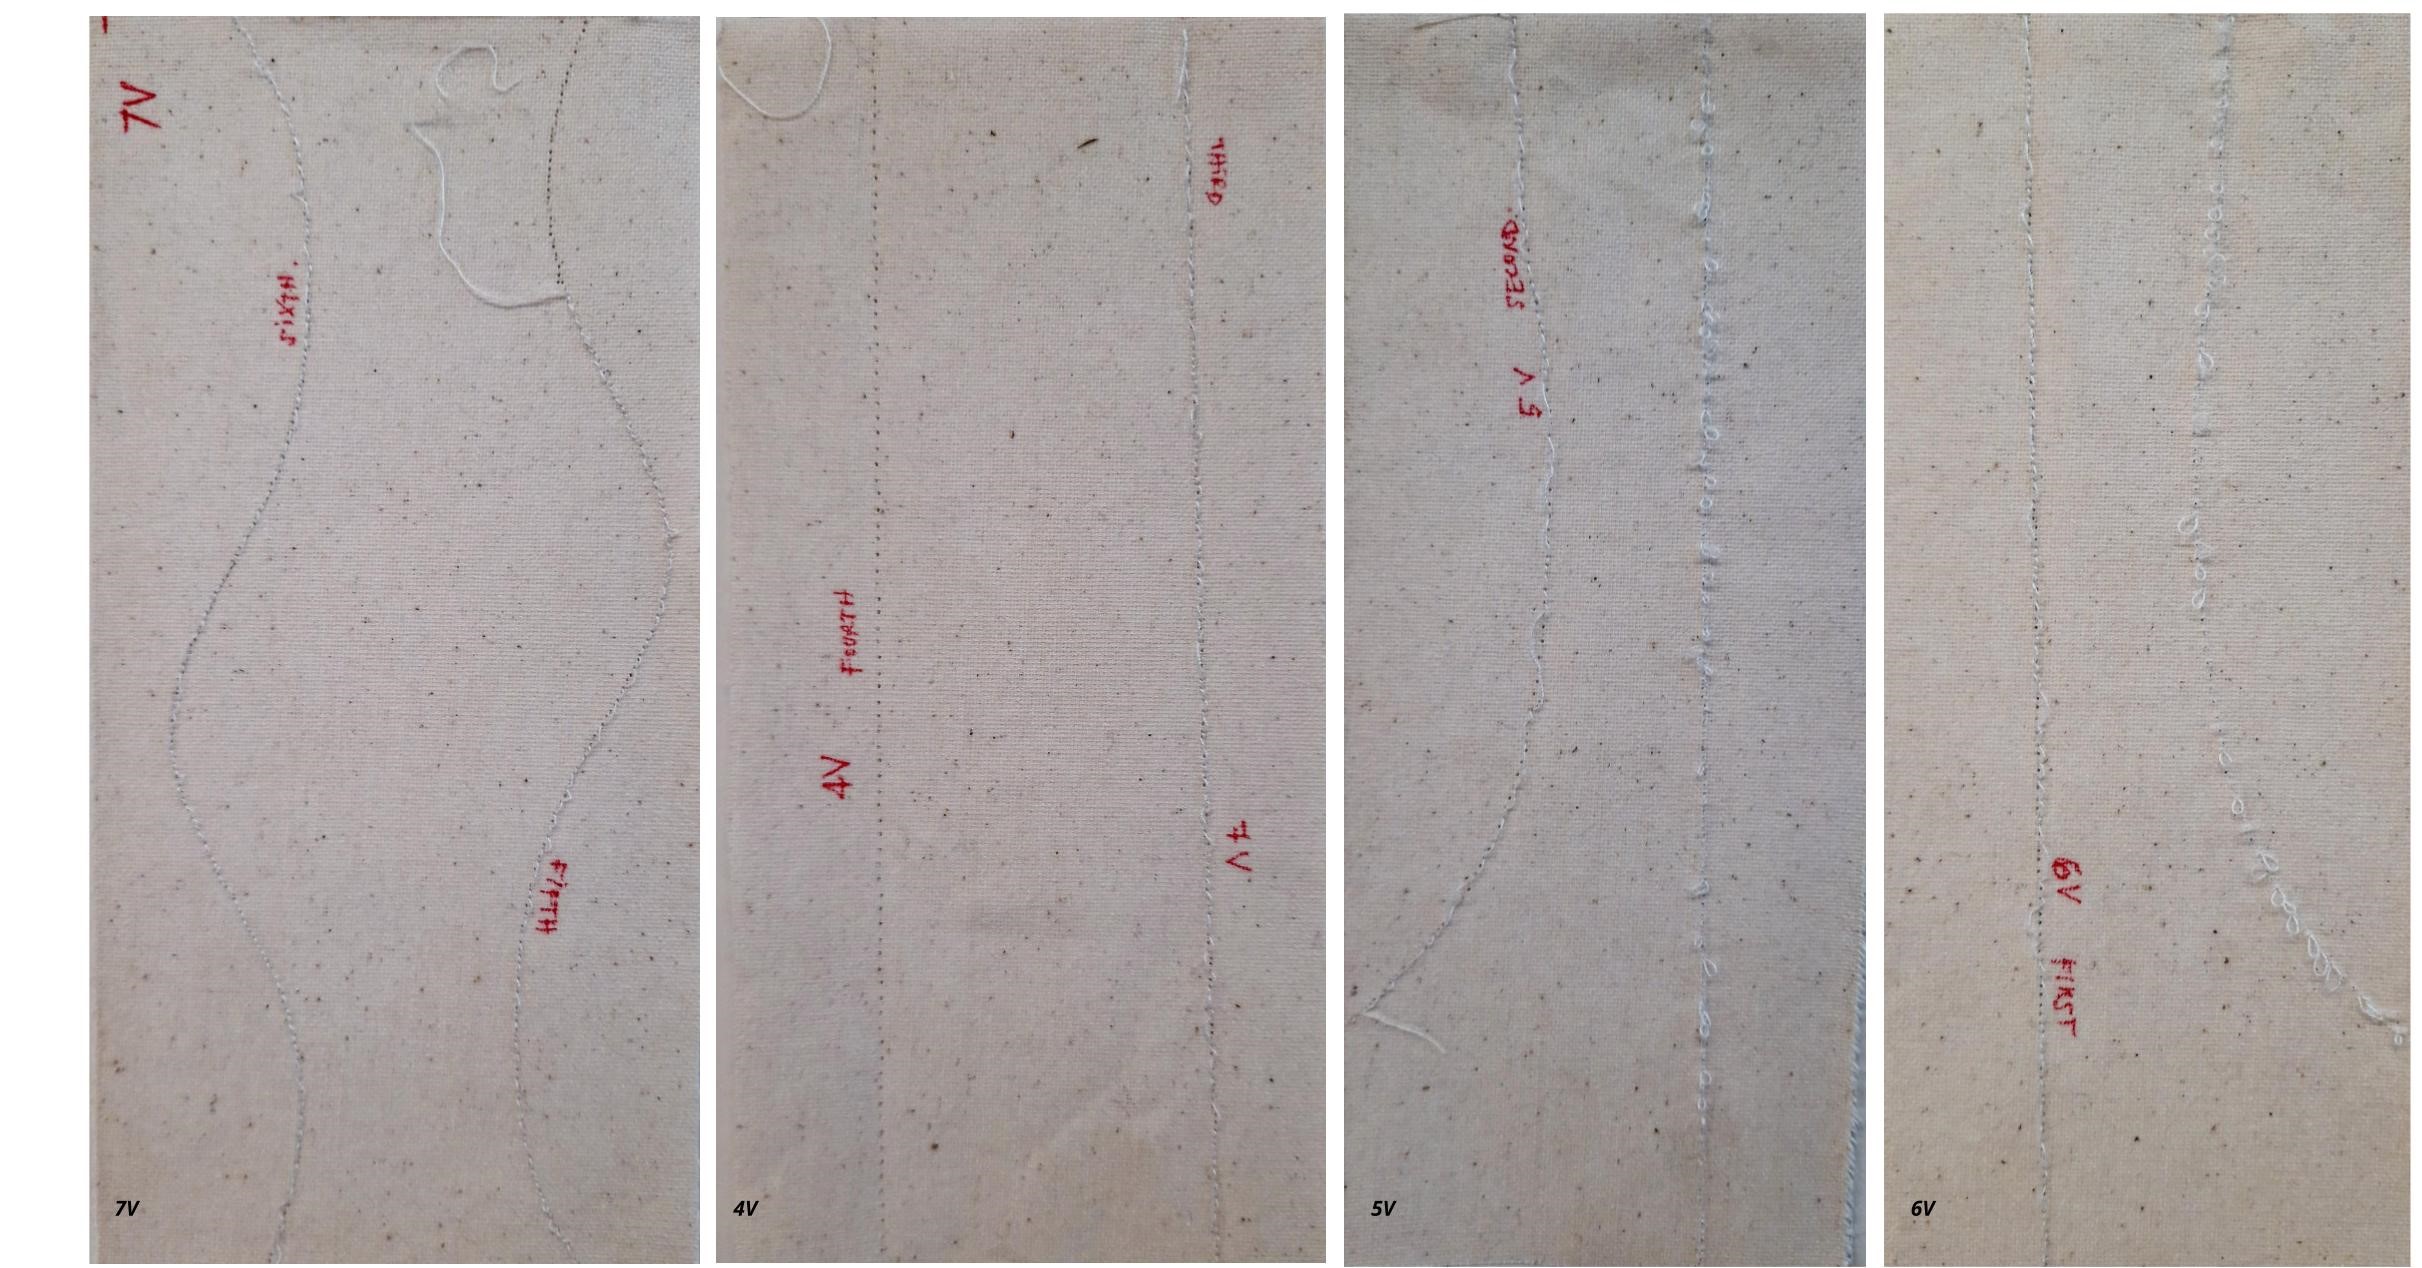 7V
SIXTH.
FIFTH
7V
THIRD
FOURTH
4V
4V
4V
SECOND.
5V
5V
6V
FIRST
6V